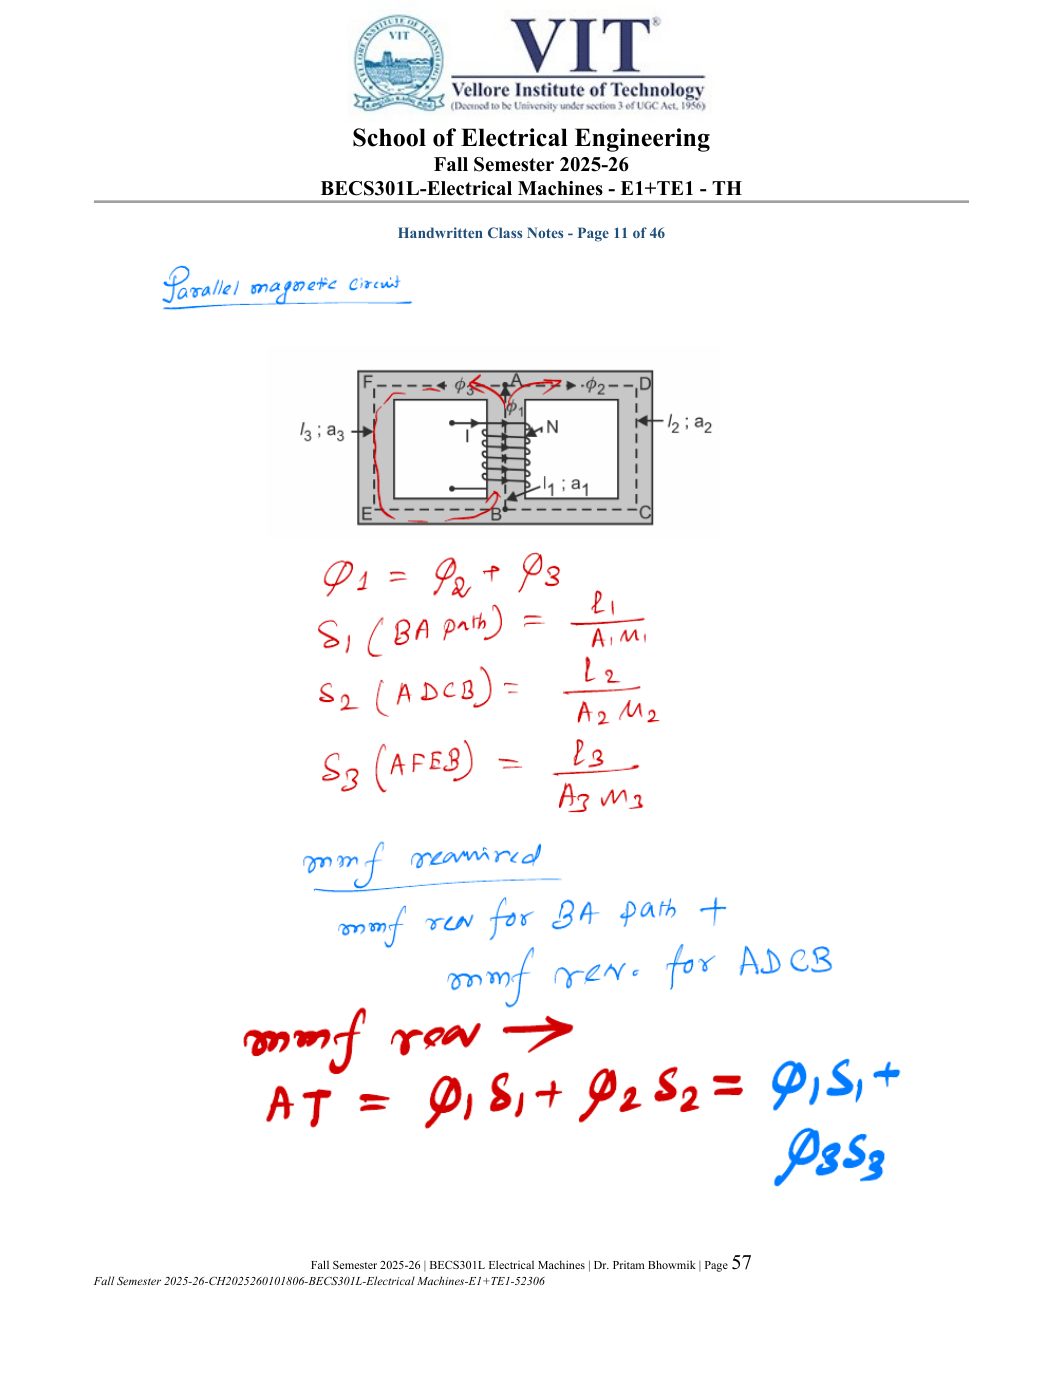 VIT
VIT®
Vellore Institute of Technology
(Deemed to be University under section 3 of UGC Act, 1956)
School of Electrical Engineering
Fall Semester 2025-26
BECS301L-Electrical Machines - E1+TE1 - TH
Handwritten Class Notes - Page 11 of 46
Parallel magnetic circuit
F ϕ3 A ϕ2 D
ϕ1
l3 ; a3 I N l2 ; a2
l1 ; a1
E B C
φ1 = φ2 + φ3
S1 (BA path) = l1 / A1 M1
S2 (ADCB) = l2 / A2 M2
S3 (AFEB) = l3 / A3 M3
mmf required
mmf req for BA path +
mmf req. for ADCB
mmf req →
AT = φ1 S1 + φ2 S2 = φ1 S1 +
φ3 S3
Fall Semester 2025-26 | BECS301L Electrical Machines | Dr. Pritam Bhowmik | Page 57
Fall Semester 2025-26-CH2025260101806-BECS301L-Electrical Machines-E1+TE1-52306